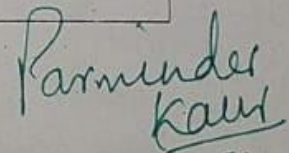 Parminder
Kaur